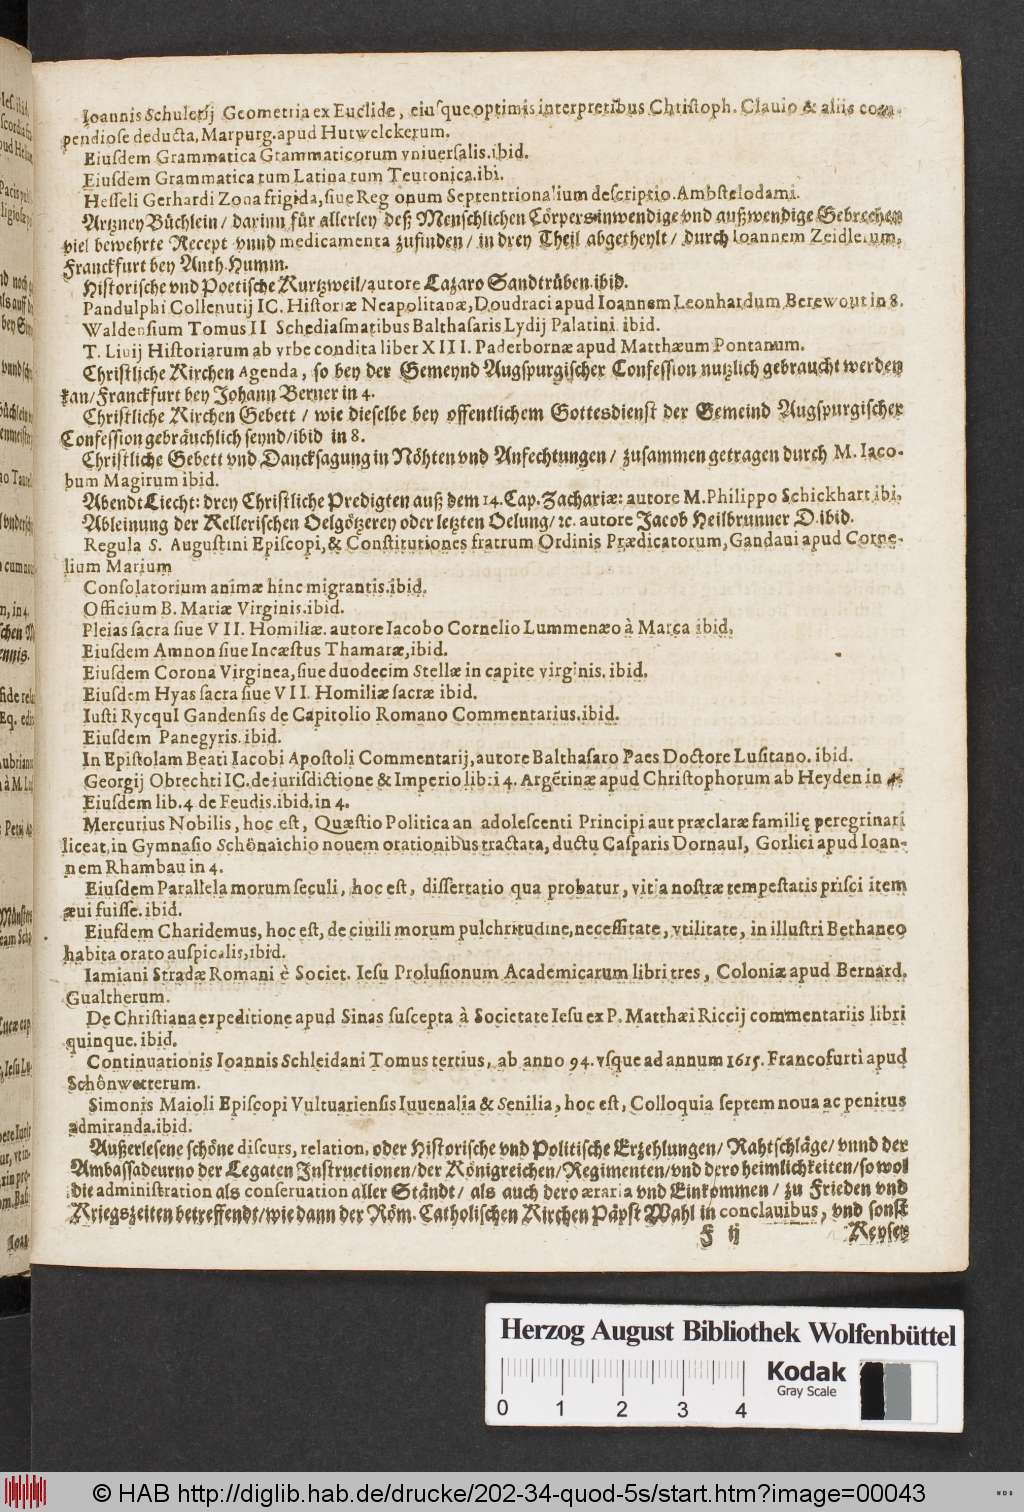 Ioannis Schuletij Geometria ex Euclide, eiusque optimis interpretibus Christoph. Clauio & aliis com-
pendiose deducta, Marpurg. apud Hutwelckerum.
Eiusdem Grammatica Grammaticorum vniuersalis. ibid.
Eiusdem Grammatica tum Latina tum Teutonica. ibi.
Hesseli Gerhardi Zona frigida, siue Reg onum Septentrionalium descriptio. Ambstelodami.
Artzney Büchlein / darinn für allerley deß Menschlichen Cörpers inwendige vnd außwendige Gebrechen
viel bewehrte Recept vnnd medicamenta zufinden / in drey Theil abgetheylt / durch Ioannem Zeidlerum,
Franckfurt bey Anth. Humm.
Historische vnd Poetische Kurtzweil / autore Lazaro Sandtrüben. ibid.
Pandulphi Collenutij IC. Historiæ Neapolitanæ, Doudraci apud Ioannem Leonhardum Berewout in 8.
Waldensium Tomus II Schediasmatibus Balthasaris Lydij Palatini ibid.
T. Liuij Historiarum ab vrbe condita liber XIII. Paderbornæ apud Matthæum Pontanum.
Christliche Kirchen Agenda, so bey der Gemeynd Augspurgischer Confession nutzlich gebraucht werden
kan / Franckfurt bey Johann Berner in 4.
Christliche Kirchen Gebett / wie dieselbe bey offentlichem Gottesdienst der Gemeind Augspurgischer
Confession gebräuchlich seynd / ibid in 8.
Christliche Gebett vnd Dancksagung in Nöhten vnd Anfechtungen / zusammen getragen durch M. Iaco-
bum Magirum ibid.
Abendt Liecht: drey Christliche Predigten auß dem 14. Cap. Zachariæ: autore M. Philippo Schickhart ibi,
Ableinung der Kellerischen Oelgötzerey oder letzten Oelung / ꝛc. autore Jacob Heilbrunner D. ibid.
Regula S. Augustini Episcopi, & Constitutiones fratrum Ordinis Prædicatorum, Gandaui apud Corne-
lium Marium
Consolatorium animæ hinc migrantis. ibid.
Officium B. Mariæ Virginis. ibid.
Pleias sacra siue VII. Homiliæ. autore Iacobo Cornelio Lummenæo à Marca ibid,
Eiusdem Amnon siue Incæstus Thamaræ, ibid.
Eiusdem Corona Virginea, siue duodecim Stellæ in capite virginis. ibid.
Eiusdem Hyas sacra siue VII. Homiliæ sacræ ibid.
Iusti RycquI Gandensis de Capitolio Romano Commentarius. ibid.
Eiusdem Panegyris. ibid.
In Epistolam Beati Iacobi Apostoli Commentarij, autore Balthasaro Paes Doctore Lusitano. ibid.
Georgij Obrechti IC. de iurisdictione & Imperio lib: i 4. Argẽtinæ apud Christophorum ab Heyden in 4.
Eiusdem lib. 4 de Feudis. ibid. in 4.
Mercurius Nobilis, hoc est, Quæstio Politica an adolescenti Principi aut præclaræ familię peregrinari
liceat, in Gymnasio Schönaichio nouem orationibus tractata, ductu Casparis DornauI, Gorlici apud Ioan-
nem Rhambau in 4.
Eiusdem Parallela morum seculi, hoc est, dissertatio qua probatur, vitia nostræ tempestatis prisci item
æui fuisse. ibid.
Eiusdem Charidemus, hoc est, de ciuili morum pulchritudine, necessitate, vtilitate, in illustri Bethaneo
habita orato auspicalis, ibid.
Iamiani Stradæ Romani è Societ. Iesu Prolusionum Academicarum libri tres, Coloniæ apud Bernard.
Gualtherum.
De Christiana expeditione apud Sinas suscepta à Societate Iesu ex P. Matthæi Riccij commentariis libri
quinque. ibid.
Continuationis Ioannis Schleidani Tomus tertius, ab anno 94. vsque ad annum 1615. Francofurti apud
Schönwetterum.
Simonis Maioli Episcopi Vultuariensis Iuuenalia & Senilia, hoc est, Colloquia septem noua ac penitus
admiranda. ibid.
Außerlesene schöne discurs, relation, oder Historische vnd Politische Erzehlungen / Rahtschläge / vnnd der
Ambassadeurn o der Legaten Instructionen / der Königreichen / Regimenten / vnd dero heimlichkeiten / so wol
die administration als conseruation aller Ständt / als auch dero æraria vnd Einkommen / zu Frieden vnd
Kriegszeiten betreffendt / wie dann der Röm. Catholischen Kirchen Päpst Wahl in conclauibus, vnd sonst
F ij Keyser
Herzog August Bibliothek Wolfenbüttel
Kodak
Gray Scale
0 1 2 3 4
© HAB http://diglib.hab.de/drucke/202-34-quod-5s/start.htm?image=00043